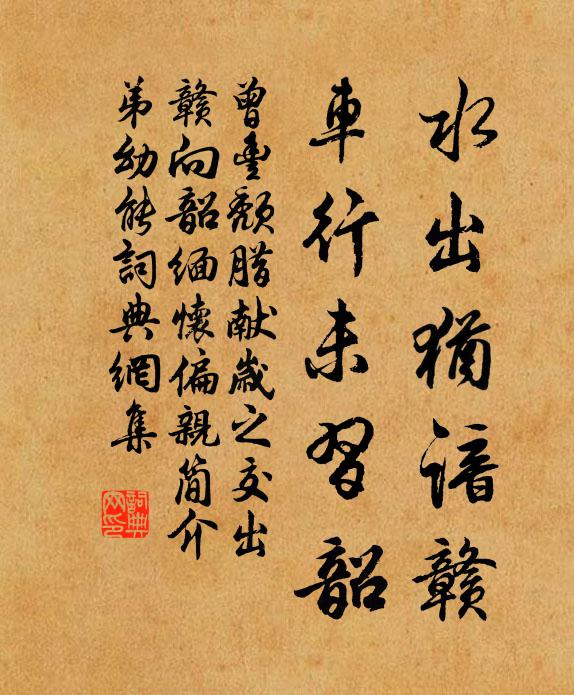 水出猶諳贛
車行未習韶
曾豐頹腊献歲之交出
贛向韶緬懷偏親简介
弟幼能詞典網集
詞典
网印